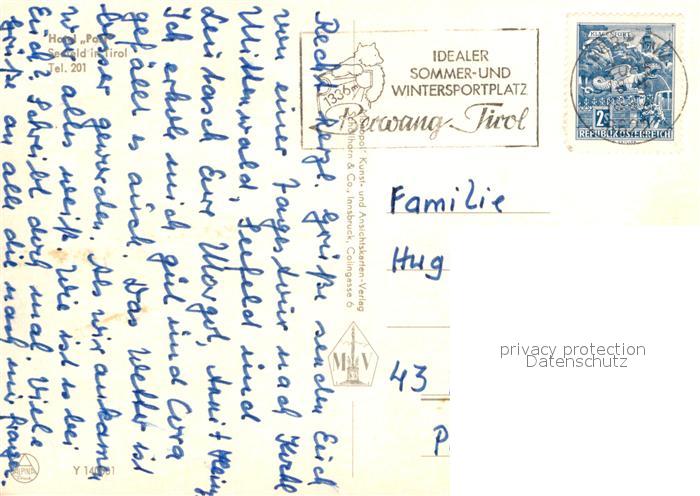 Hotel „Post"
Seefeld in Tirol
Tel. 201
Recht herzl. Grüße senden Euch
von einer Tagestour nach
Mittenwald, Seefeld und
Leutasch Eure Margot, Anni + Heinz
Ich erhole mich gut und
gefällt es auch. Das Wetter ist
besser geworden. Als wir ankamen
war alles weiß. Wie ist es bei
Euch? Schreibt doch mal. Viele
Grüße an alle die nach mir fragen.
ALPINA
Druck
Y 140
Kunst- und Ansichtskarten-Verlag
& Co., Innsbruck, Colingasse 6
M V
1336m
IDEALER
SOMMER-UND
WINTERSPORTPLATZ
Berwang-Tirol
KLAGENFURT
2S
REPUBLIK ÖSTERREICH
Familie
Hug
43
P
privacy protection
Datenschutz